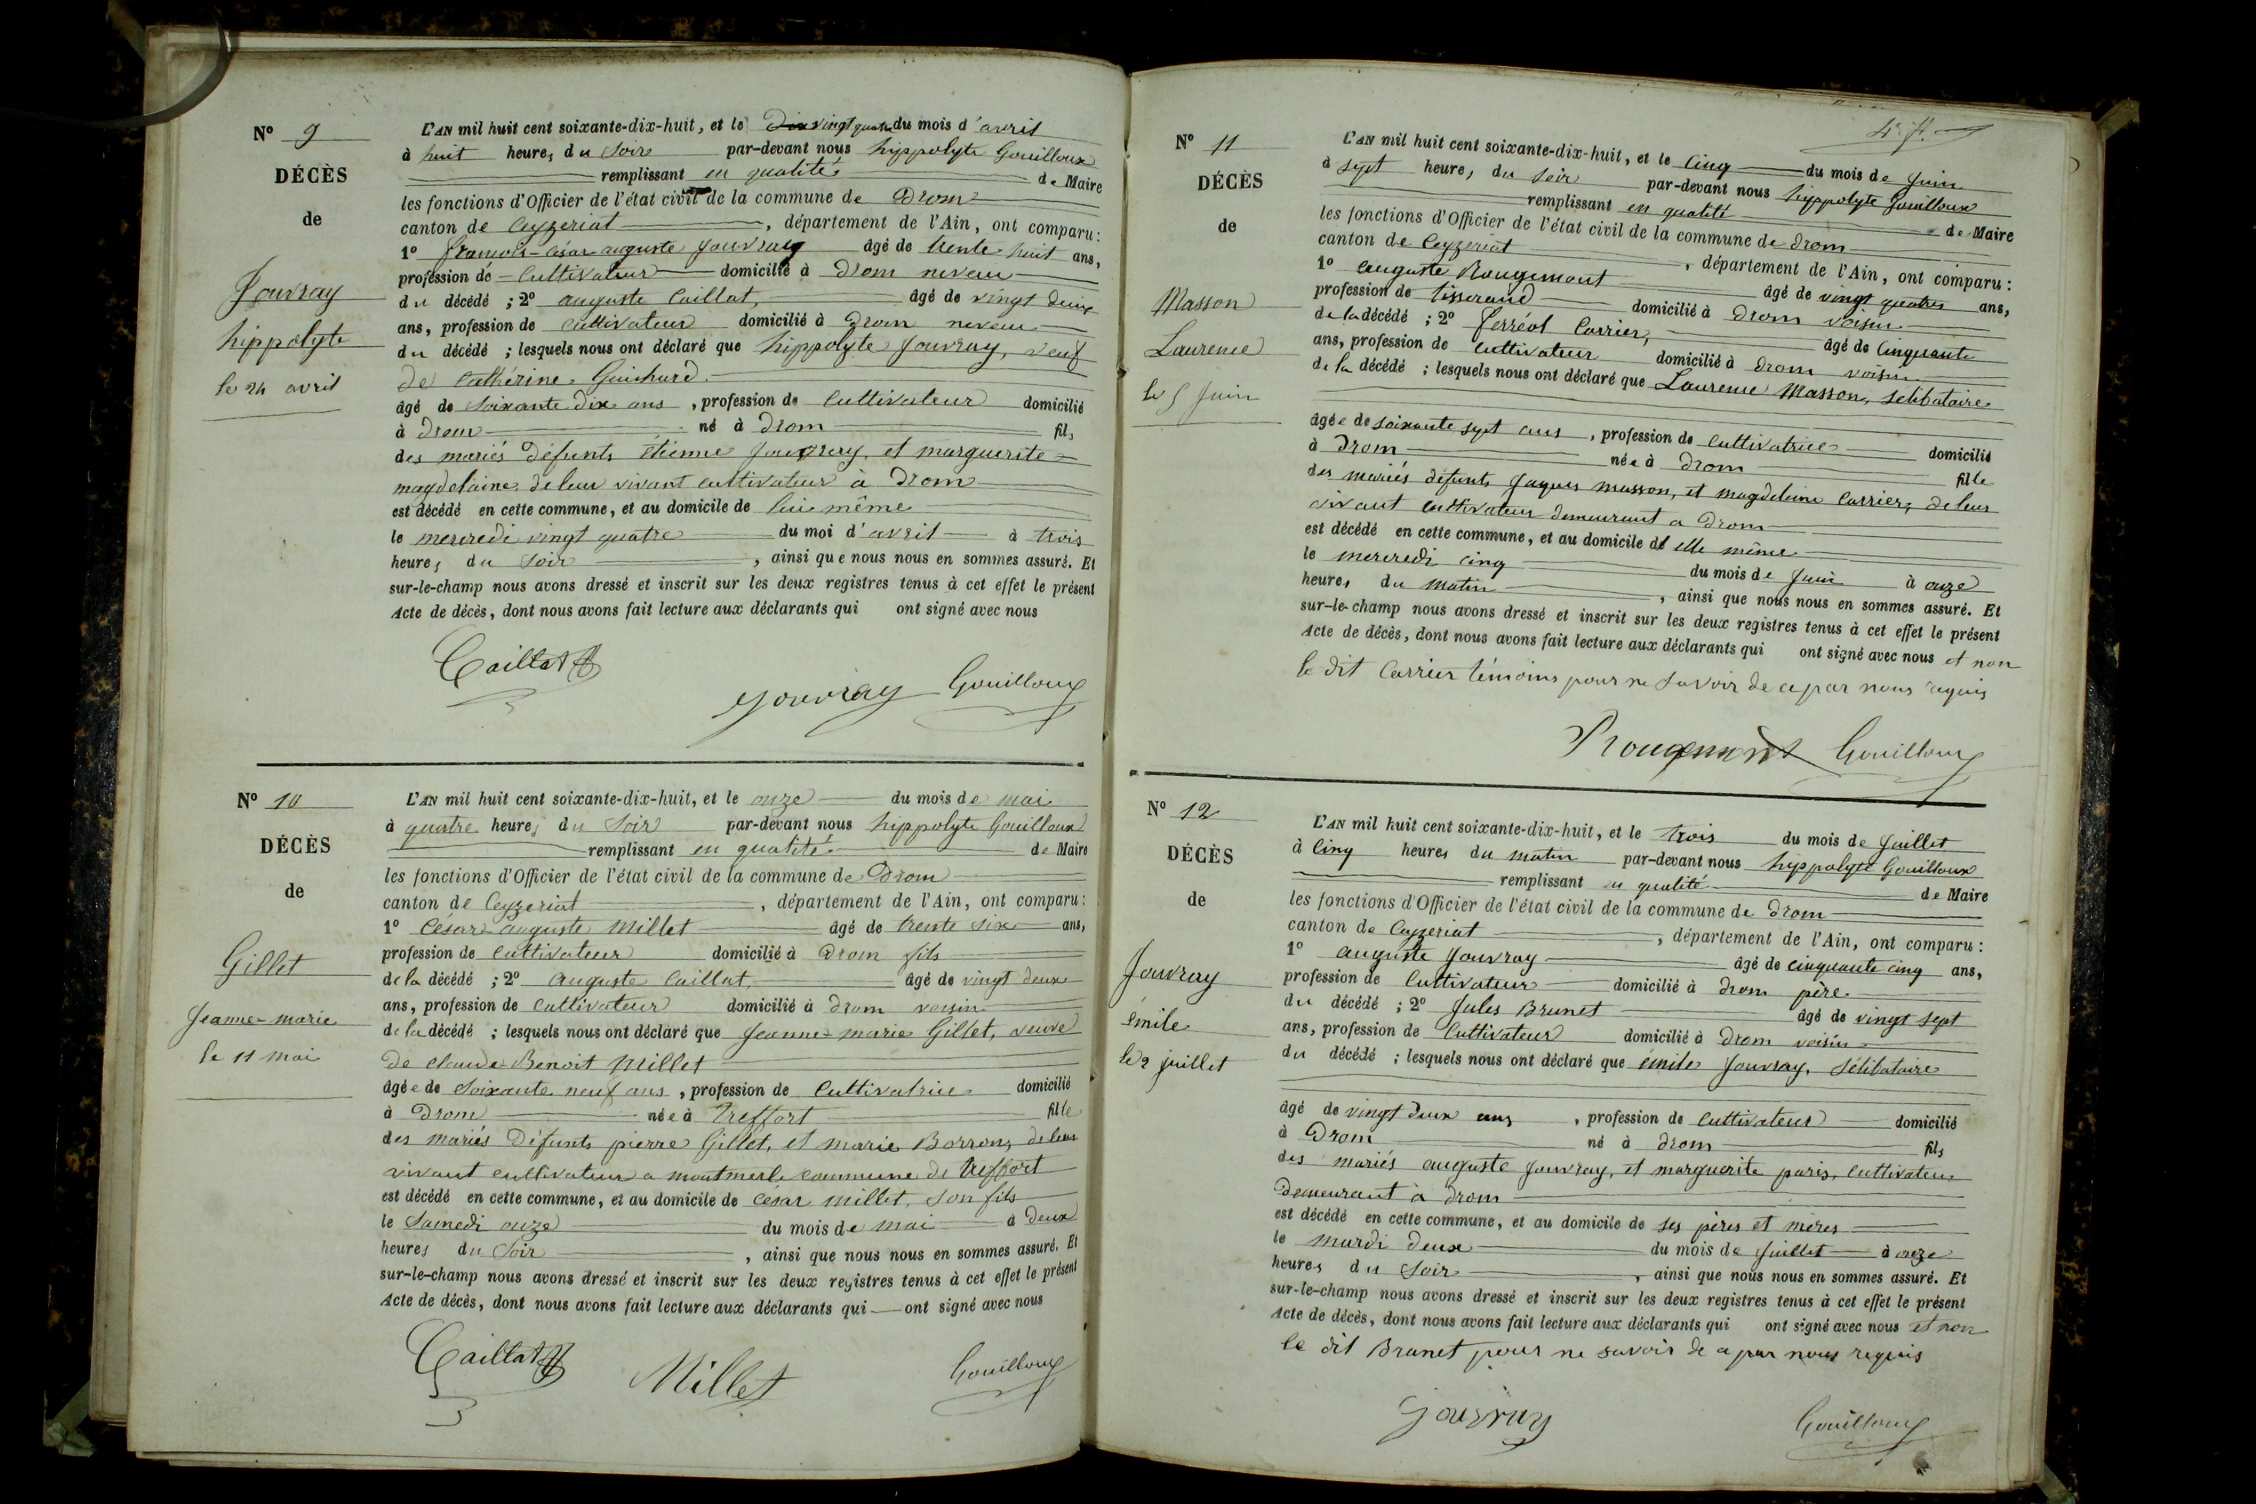 N° 9
DÉCÈS
de
Jouvray
hippolyte
le 24 avril
L'AN mil huit cent soixante-dix-huit, et le Dix vingt quatre du mois d'avril
à huit heures du Soir par-devant nous hippolyte Gouilloux
remplissant en qualité de Maire
les fonctions d'Officier de l'état civil de la commune de Drom
canton de Ceyzeriat, département de l'Ain, ont comparu :
1° françois-césar auguste Jouvray âgé de trente huit ans,
profession de Cultivateur domicilié à Drom neveu
du décédé ; 2° auguste Caillat, âgé de vingt deux
ans, profession de Cultivateur domicilié à Drom neveu
du décédé ; lesquels nous ont déclaré que hippolyte Jouvray, veuf
de Cathérine Guichard.
âgé de Soixante dix ans, profession de Cultivateur domicilié
à Drom né à Drom fils
des mariés défunts étienne Jouvray, et marguerite
magdelaine de leur vivant cultivateur à Drom
est décédé en cette commune, et au domicile de lui même
le mercredi vingt quatre du moi d'avril à trois
heures du Soir, ainsi que nous nous en sommes assuré. Et
sur-le-champ nous avons dressé et inscrit sur les deux registres tenus à cet effet le présent
Acte de décès, dont nous avons fait lecture aux déclarants qui ont signé avec nous
Caillat
Jouvray Gouilloux
N° 10
DÉCÈS
de
Gillet
Jeanne-marie
le 11 mai
L'AN mil huit cent soixante-dix-huit, et le onze du mois de mai
à quatre heures du Soir par-devant nous hippolyte Gouilloux
remplissant en qualité de Maire
les fonctions d'Officier de l'état civil de la commune de Drom
canton de Ceyzeriat, département de l'Ain, ont comparu :
1° César auguste Millet âgé de trente six ans,
profession de Cultivateur domicilié à Drom fils
de la décédé ; 2° auguste Caillat, âgé de vingt deux
ans, profession de Cultivateur domicilié à Drom voisin
de la décédé ; lesquels nous ont déclaré que Jeanne-marie Gillet, veuve
de claude Benoit Millet
âgée de Soixante neuf ans, profession de Cultivatrice domicilié
à Drom née à Treffort fille
des mariés Défunts pierre Gillet, et marie Barron, de leur
vivant cultivateur a montmerle commune de treffort
est décédé en cette commune, et au domicile de césar millet, son fils
le Samedi onze du mois de mai à Deux
heures du Soir, ainsi que nous nous en sommes assuré. Et
sur-le-champ nous avons dressé et inscrit sur les deux registres tenus à cet effet le présent
Acte de décès, dont nous avons fait lecture aux déclarants qui ont signé avec nous
Caillat Millet Gouilloux
N° 11
DÉCÈS
de
Masson
Laurence
le 5 Juin
L'AN mil huit cent soixante-dix-huit, et le Cinq du mois de Juin
à Sept heures du Soir par-devant nous hippolyte Gouilloux
remplissant en qualité de Maire
les fonctions d'Officier de l'état civil de la commune de Drom
canton de Ceyzeriat, département de l'Ain, ont comparu :
1° auguste Rougemont âgé de vingt quatre ans,
profession de tisserand domicilié à Drom voisin
de la décédé ; 2° ferréol Carrier, âgé de Cinquante
ans, profession de Cultivateur domicilié à Drom voisin
de la décédé ; lesquels nous ont déclaré que Laurence Masson, Sélibataire
âgée de soixante sept ans, profession de Cultivatrice domicilié
à Drom née à Drom fille
des mariés défunts Jaques masson, et magdeleine Carrier, de leur
vivant Cultivateur demeurant a Drom
est décédé en cette commune, et au domicile d'elle même
le mercredi cinq du mois de Juin à onze
heures du matin, ainsi que nous nous en sommes assuré. Et
sur-le-champ nous avons dressé et inscrit sur les deux registres tenus à cet effet le présent
Acte de décès, dont nous avons fait lecture aux déclarants qui ont signé avec nous et non
le dit Carrier témoins pour ne Savoir de ce par nous requis
Rougemont Gouilloux
N° 12
DÉCÈS
de
Jouvray
émile
le 2 juillet
L'AN mil huit cent soixante-dix-huit, et le trois du mois de Juillet
à Cinq heures du matin par-devant nous hippolyte Gouilloux
remplissant en qualité de Maire
les fonctions d'Officier de l'état civil de la commune de Drom
canton de Ceyzeriat, département de l'Ain, ont comparu :
1° auguste Jouvray âgé de cinquante cinq ans,
profession de Cultivateur domicilié à Drom père
du décédé ; 2° Jules Brunet âgé de vingt sept
ans, profession de Cultivateur domicilié à Drom voisin
du décédé ; lesquels nous ont déclaré que émile Jouvray, Sélibataire
âgé de vingt deux ans, profession de Cultivateur domicilié
à Drom né à Drom fils
des mariés auguste Jouvray, et marguerite paris, Cultivateur
Demeurant à Drom
est décédé en cette commune, et au domicile de ses pères et mères
le mardi deux du mois de Juillet à onze
heures du Soir, ainsi que nous nous en sommes assuré. Et
sur-le-champ nous avons dressé et inscrit sur les deux registres tenus à cet effet le présent
Acte de décès, dont nous avons fait lecture aux déclarants qui ont signé avec nous et non
le dit Brunet pour ne savoir de ce par nous requis
Jouvray Gouilloux